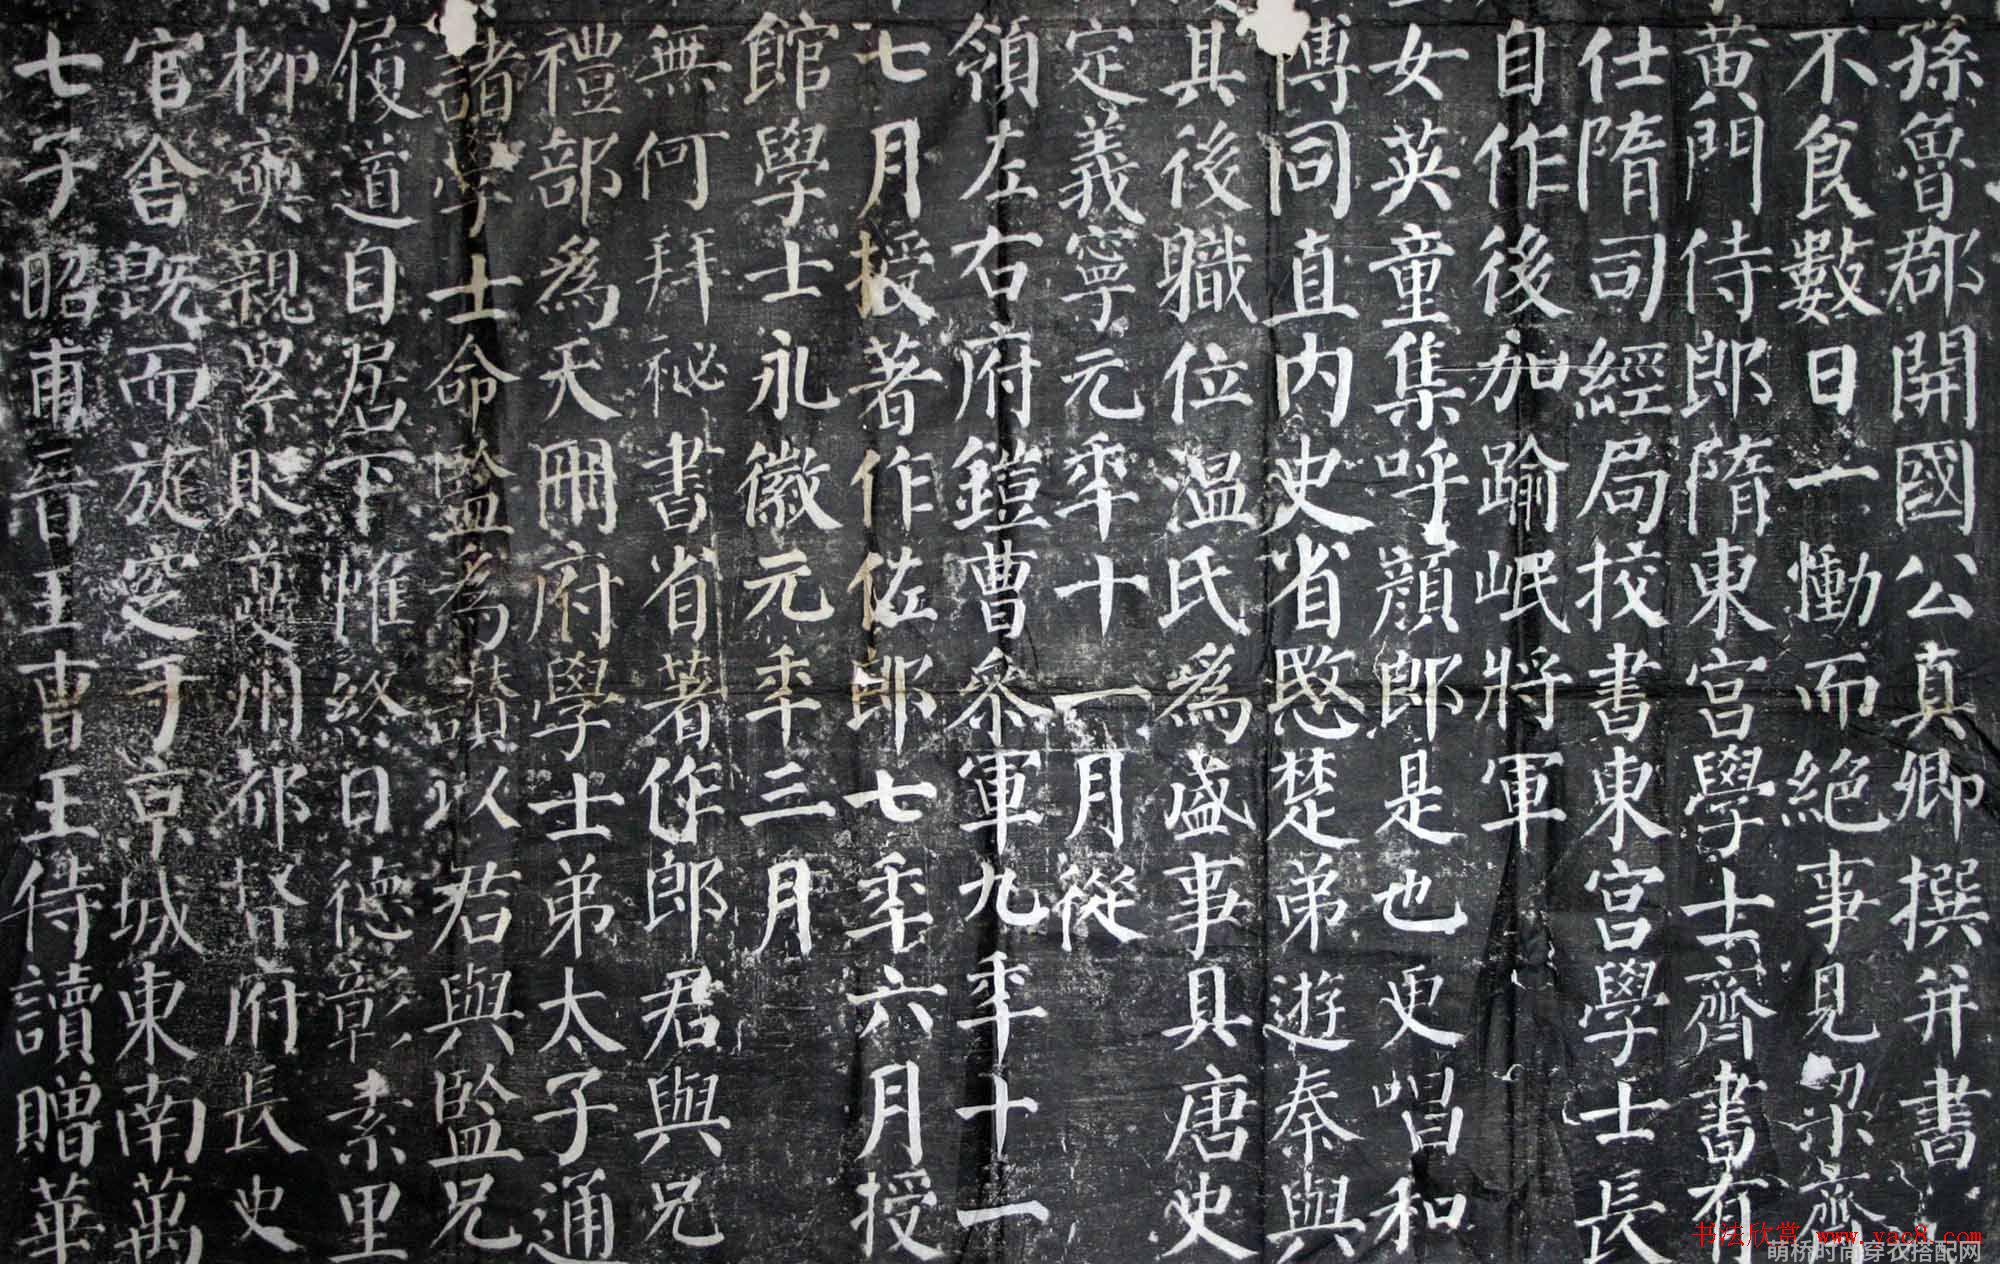 孫魯郡開國公真卿撰并書
不食數日一慟而絶事見梁齊
黃門侍郎隋東宮學士齊書有
仕隋司經局挍書東宮學士長
自作後加踰岷將軍
女英童集呼顏郎是也更唱和
博同直内史省愍楚弟遊秦與
具後職位温氏爲盛事具唐史
定義寧元年十一月從
領左右府鎧曹參軍九年十一
七月授著作佐郎七年六月授
館學士永徽元年三月
無何拜祕書省著作郎君與兄
禮部爲天冊府學士弟太子通
諸學士命監爲讃以君與監兄
履道自居下帷終日德彰素里
柳奭親累貶夔州都督府長史
官舍既而旋窆于京城東南萬
七子昭甫晉王曹王侍讀贈華
书法欣赏 www.yac8.com
萌桥时尚穿衣搭配网